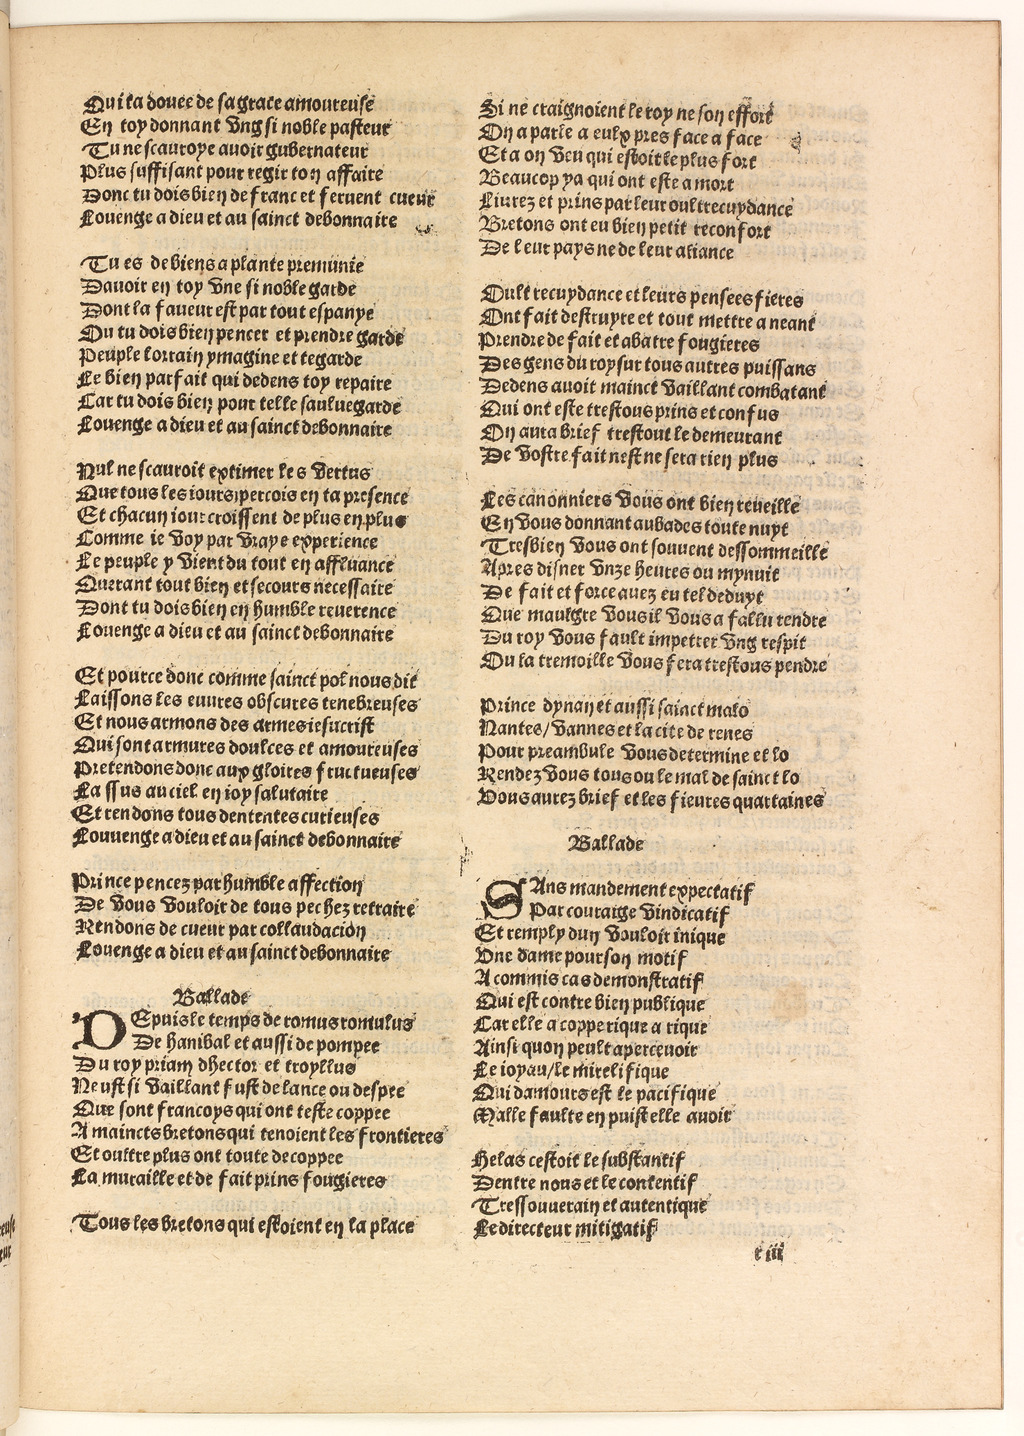 Qui ta douee de sa grace amoureuse
En toy donnant vng si noble pasteur
Tu ne scauroye auoir gubernateur
Plus suffisant pour regir ton affaire
Donc tu dois bien de franc et feruent cueur
Louenge a dieu et au sainct debonnaire

Tu es de biens a plante premunie
Dauoir en toy vne si noble garde
Dont la faueur est par tout espanye
Ou tu dois bien pencer et prendre garde
Peuple lorrain ymagine et regarde
Le bien parfait qui dedens toy repaire
Car tu dois bien pour telle sauluegarde
Louenge a dieu et au sainct debonnaire

Nul ne scauroit extimer les vertus
Que tous les iours percois en ta presence
Et chacun iour croissent de plus en plus
Comme ie voy par vraye experience
Le peuple y vient du tout en affluance
Querant tout bien et secours necessaire
Dont tu dois bien en humble reuerence
Louenge a dieu et au sainct debonnaire

Et pource donc comme sainct pol nous dit
Laissons les euures obscures tenebreuses
Et nous armons des armes iesucrist
Qui sont armures doulces et amoureuses
Pretendons donc aux gloires fructueuses
La ssus au ciel en ioy salutaire
Et rendons tous dententes curieuses
Louuenge a dieu et au sainct debonnaire

Prince pencez par humble affection
De vous vouloir de tous pechez retraire
Rendons de cueur par collaudacion
Louenge a dieu et au sainct debonnaire

Ballade
DEpuis le temps de romus romulus
De hanibal et aussi de pompee
Du roy priam dhector et troyllus
Ne ust si vaillant fust de lance ou despee
Que sont francoys qui ont teste coppee
A maincts bretons qui tenoient les frontieres
Et oultre plus ont toute decoppee
La muraille et de fait prins fougieres

Tous les bretons qui estoient en la place
Si ne craignoient le roy ne son effort
On a parle a eulx pres face a face
Et a on veu qui estoit le plus fort
Beaucop ya qui ont este a mort
Liurez et prins par leur oultrecuydance
Bretons ont eu bien petit reconfort
De leur pays ne de leur aliance

Oultrecuydance et leurs pensees fieres
Ont fait destruyre et tout mettre a neant
Prendre de fait et abatre fougieres
Des gens du roy sur tous autres puissans
Dedens auoit mainct vaillant combatant
Qui ont este trestous prins et confus
On aura brief trestout le demeurant
De vostre fait nest ne sera rien plus

Les canonniers vous ont bien reueille
En vous donnant aubades toute nuyt
Tresbien vous ont souuent dessommeille
Apres disner vnze heures ou mynuit
De fait et force auez eu tel deduyt
Que maulgre vous il vous a fallu rendre
Du roy vous fault impetrer vng respit
Ou la tremoille vous fera trestous pendre

Prince dynan et aussi sainct malo
Nantes/ vannes et la cite de renes
Pour preambule vous determine et lo
Rendez vous tous ou le mal de sainct lo
Vous aurez brief et les fieures quartaines

Ballade
SAns mandement expectatif
Par couraige vindicatif
Et remply dun vouloir inique
Vne dame pour son motif
A commis cas demonstratif
Qui est contre bien publique
Car elle a copperique a rique
Ainsi quon peult apercevoir
Le ioyau/ le mirelifique
Qui damours est le pacifique
Malle faulte en puist elle auoir

Helas cestoit le substantif
Dentre nous et le contentif
Tressouuerain et autentique
Le directeur mitigatif
e iii